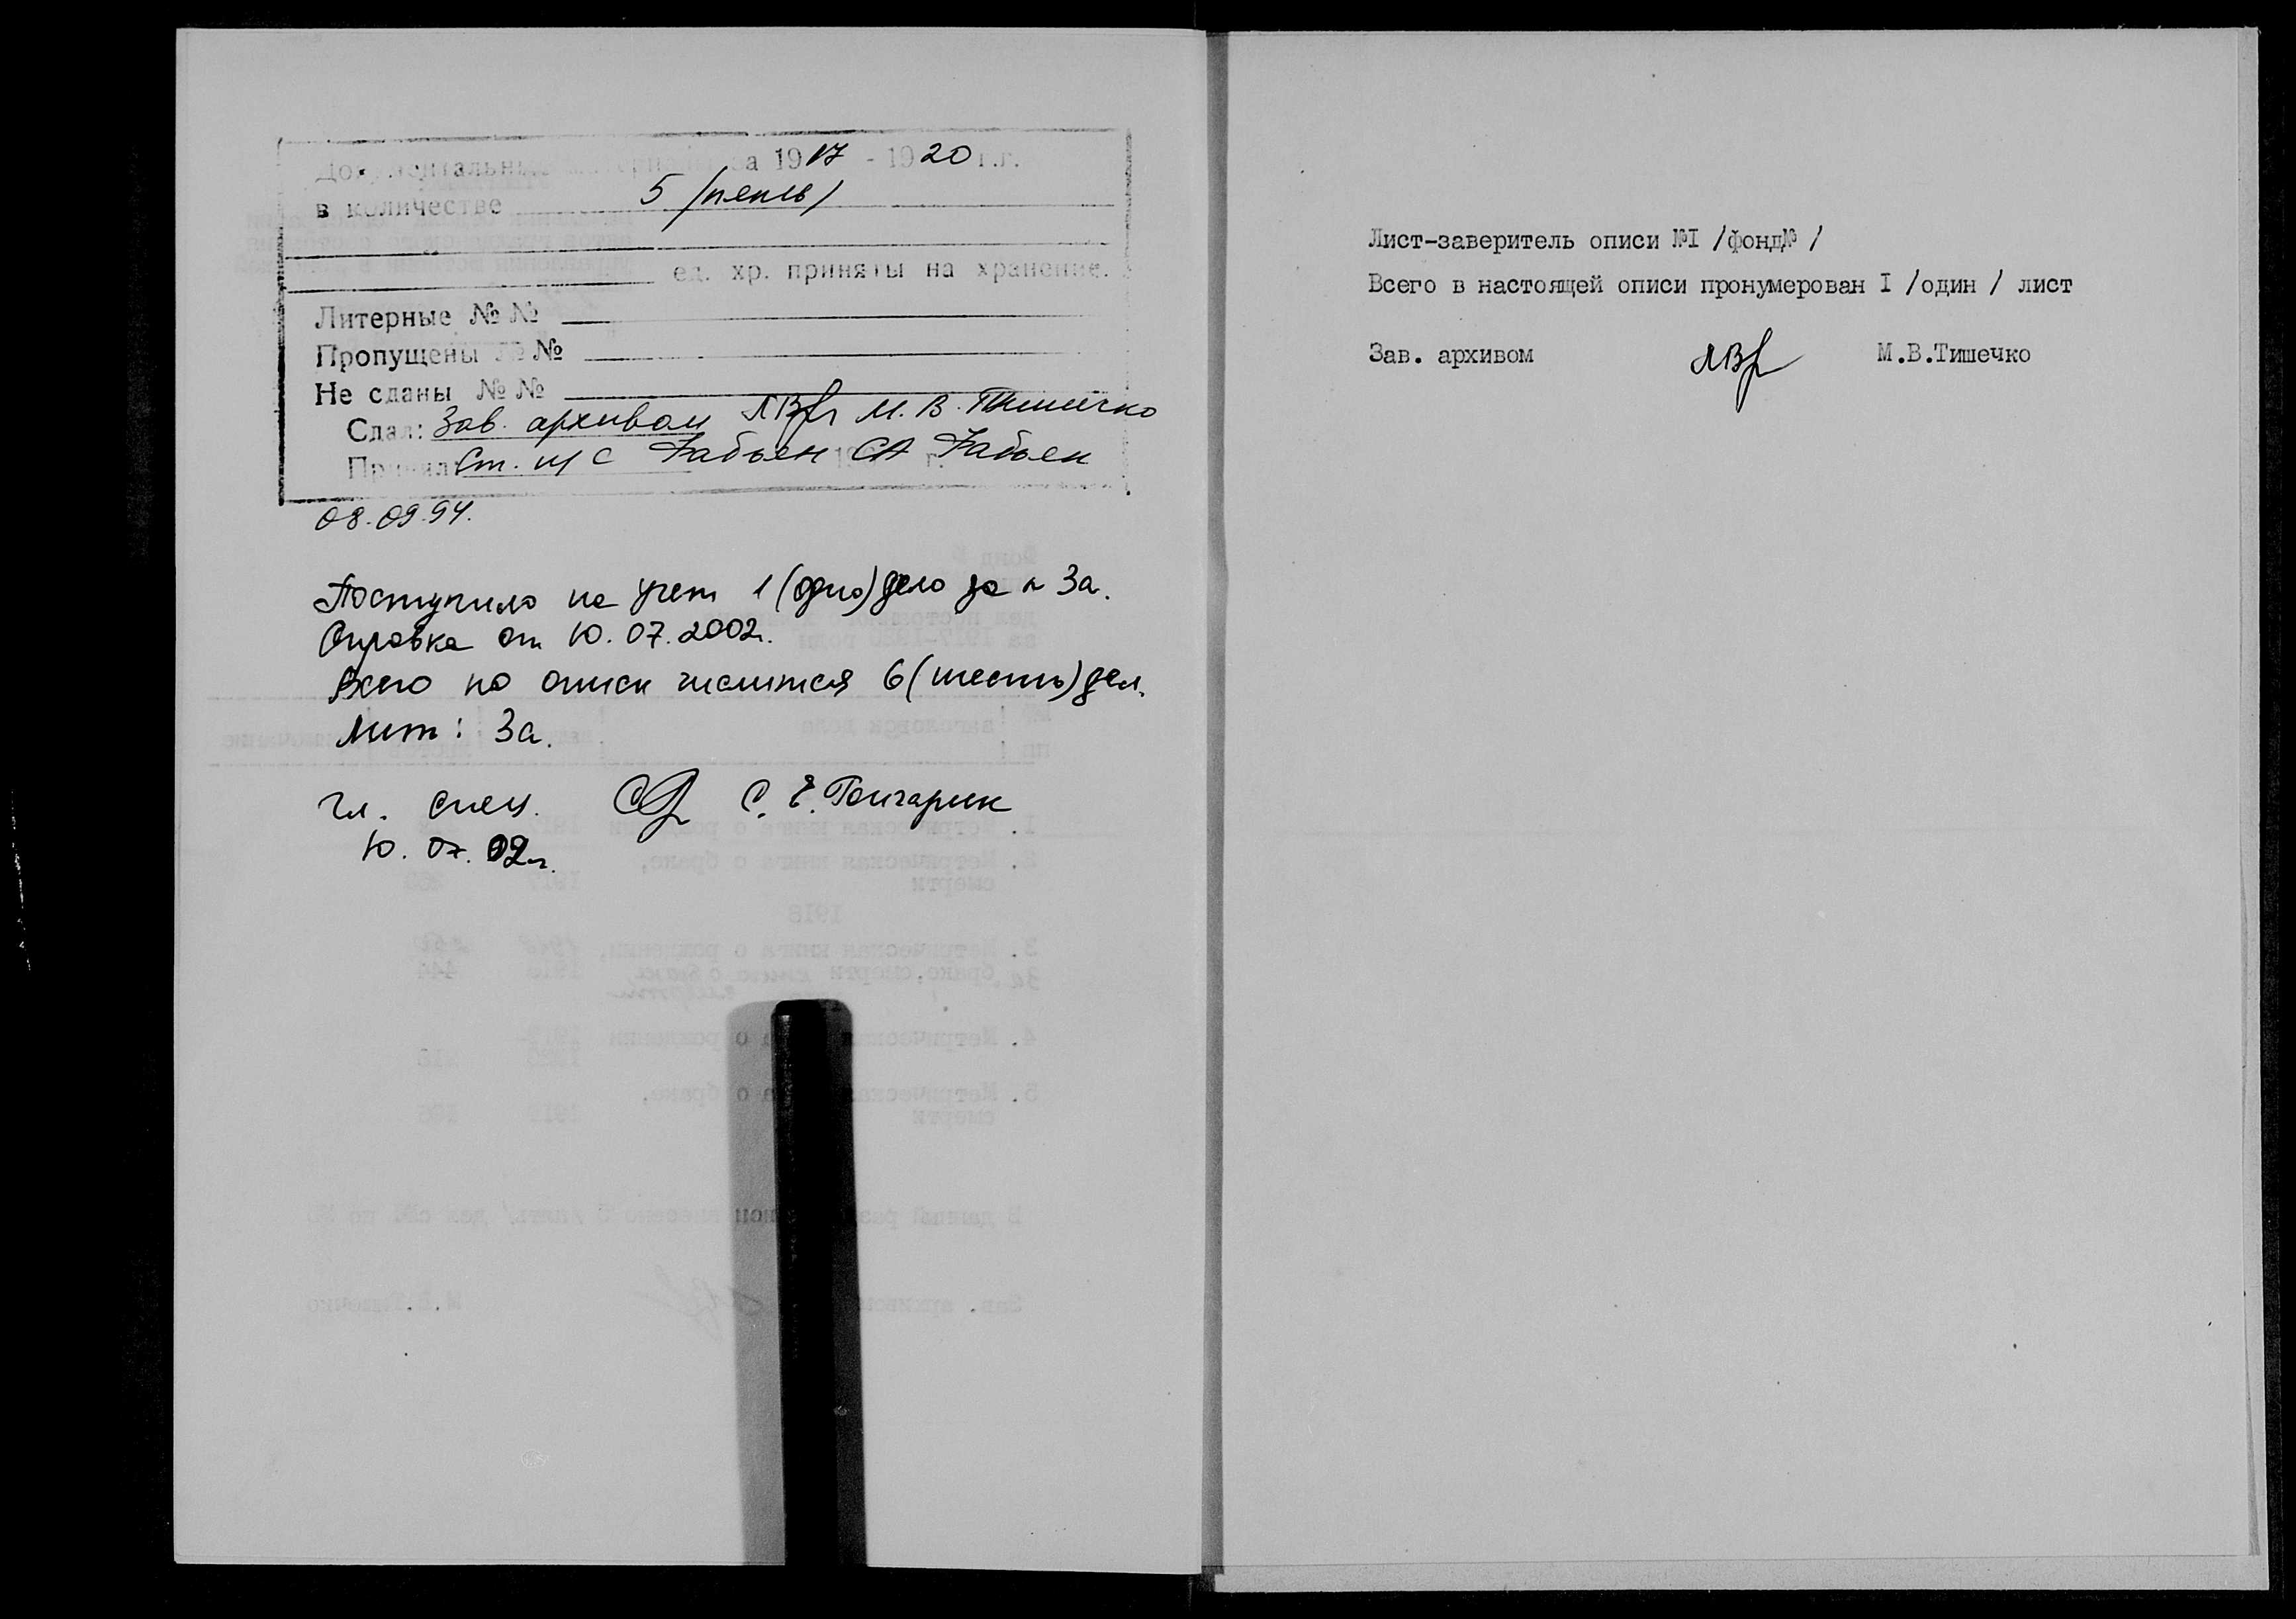 Документальные материалы за 1917 - 1920 г.г.
в количестве 5 /пять/
ед. хр. приняты на хранение.
Литерные № №
Пропущены № №
Не сданы № №
Сдал: Зав. архивом М. В. Тишечко
Принял Ст. н/с
08.09.94.
Поступило на учет 1 (одно) дело за № 3а.
Справка от 10.07.2002г.
Всего по описи числится 6 (шесть) дел.
Лит: 3а.
Гл. спец. С. Е. Гончарик
10.07.02г.
Лист-заверитель описи №I /фонд№ /
Всего в настоящей описи пронумерован I /один / лист
Зав. архивом М.В.Тишечко